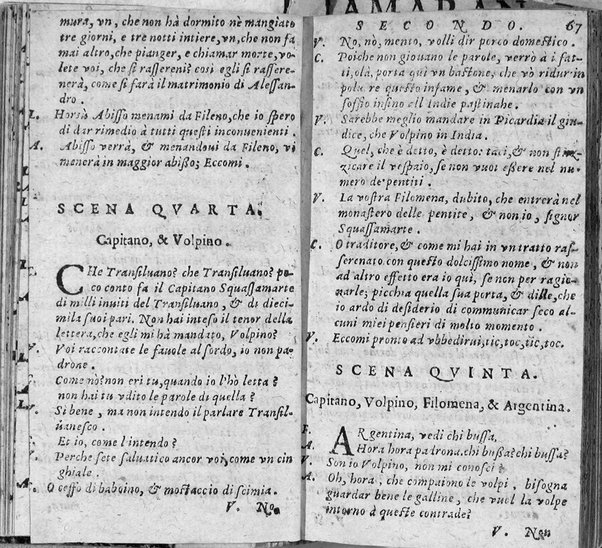 mura, vn, che non hà dormito nè mangiato
tre giorni, e tre notti intiere, vn, che non fa
mai altro, che pianger, e chiamar morte, vo-
lete voi, che si rassereni? così egli si rassere-
nerà, come si farà il matrimonio di Alessan-
dro.
L. Horsù Abisso menami da Fileno, che io spero
di dar rimedio à tutti questi inconuenienti.
A. Abisso verrà, & menandoui da Fileno, vi
menerà in maggior abißo; Eccomi.
SCENA QVARTA.
Capitano, & Volpino.
C. CHe Transiluano? che Transiluano? po-
co conto fa il Capitano Squassamarte
di milli inuiti del Transiluano, & di dieci-
mila suoi pari. Non hai inteso il tenor della
lettera, che egli mi hà mandato, Volpino?
V. Voi raccontate le fauole al sordo, io non pa-
drone.
C. Come nò? non eri tu, quando io l'hò letta?
non hai tu vdito le parole di quella?
V. Sì bene, ma non intendo il parlare Transil-
uanesco.
C. Et io, come l'intendo?
V. Perche sete saluatico ancor voi, come vn cin
ghiale.
O ceffo di baboino, & mostaccio di scimia.
V. No,
SECONDO. 67
V. No, nò, mento, volli dir porco domestico.
C. Poiche non giouano le parole, verrò à i fat-
ti, olà, porta quì vn bastone, che vò ridur in
polue re questo infame, & menarlo con vn
soffio insino all Indie pastinahe.
V. Sarebbe meglio mandare in Picardia il giu-
dice, che Volpino in India.
C. Quel, che è detto, è detto: taci, & non stuz-
zicare il vespaio, se non vuoi eßere nel nu-
mero de pentiti.
V. La vostra Filomena, dubito, che entrerà nel
monastero delle pentite, & non io, signor
Squassamarte.
C. O traditore, & come mi hai in vntratto ras-
serenato con questo dolcissimo nome, & non
ad altro effetto era io quì, se non per ragio-
narle; picchia quella sua porta, & dille, che
io ardo di desiderio di communicar seco al-
cuni miei pensieri di molto momento.
V. Eccomi pronto ad vbbedirui, tic, toc, tic, toc.
SCENA QVINTA.
Capitano, Volpino, Filomena, & Argentina.
F. ARgentina, vedi chi bussa.
A. Hora hora padrona. chi bußa? chi bussa?
V. Son io Volpino, non mi conosci?
A. Oh, hora, che compaiono le volpi, bisogna
guardar bene le galline, che vuol la volpe
intorno à queste contrade?
V. Non